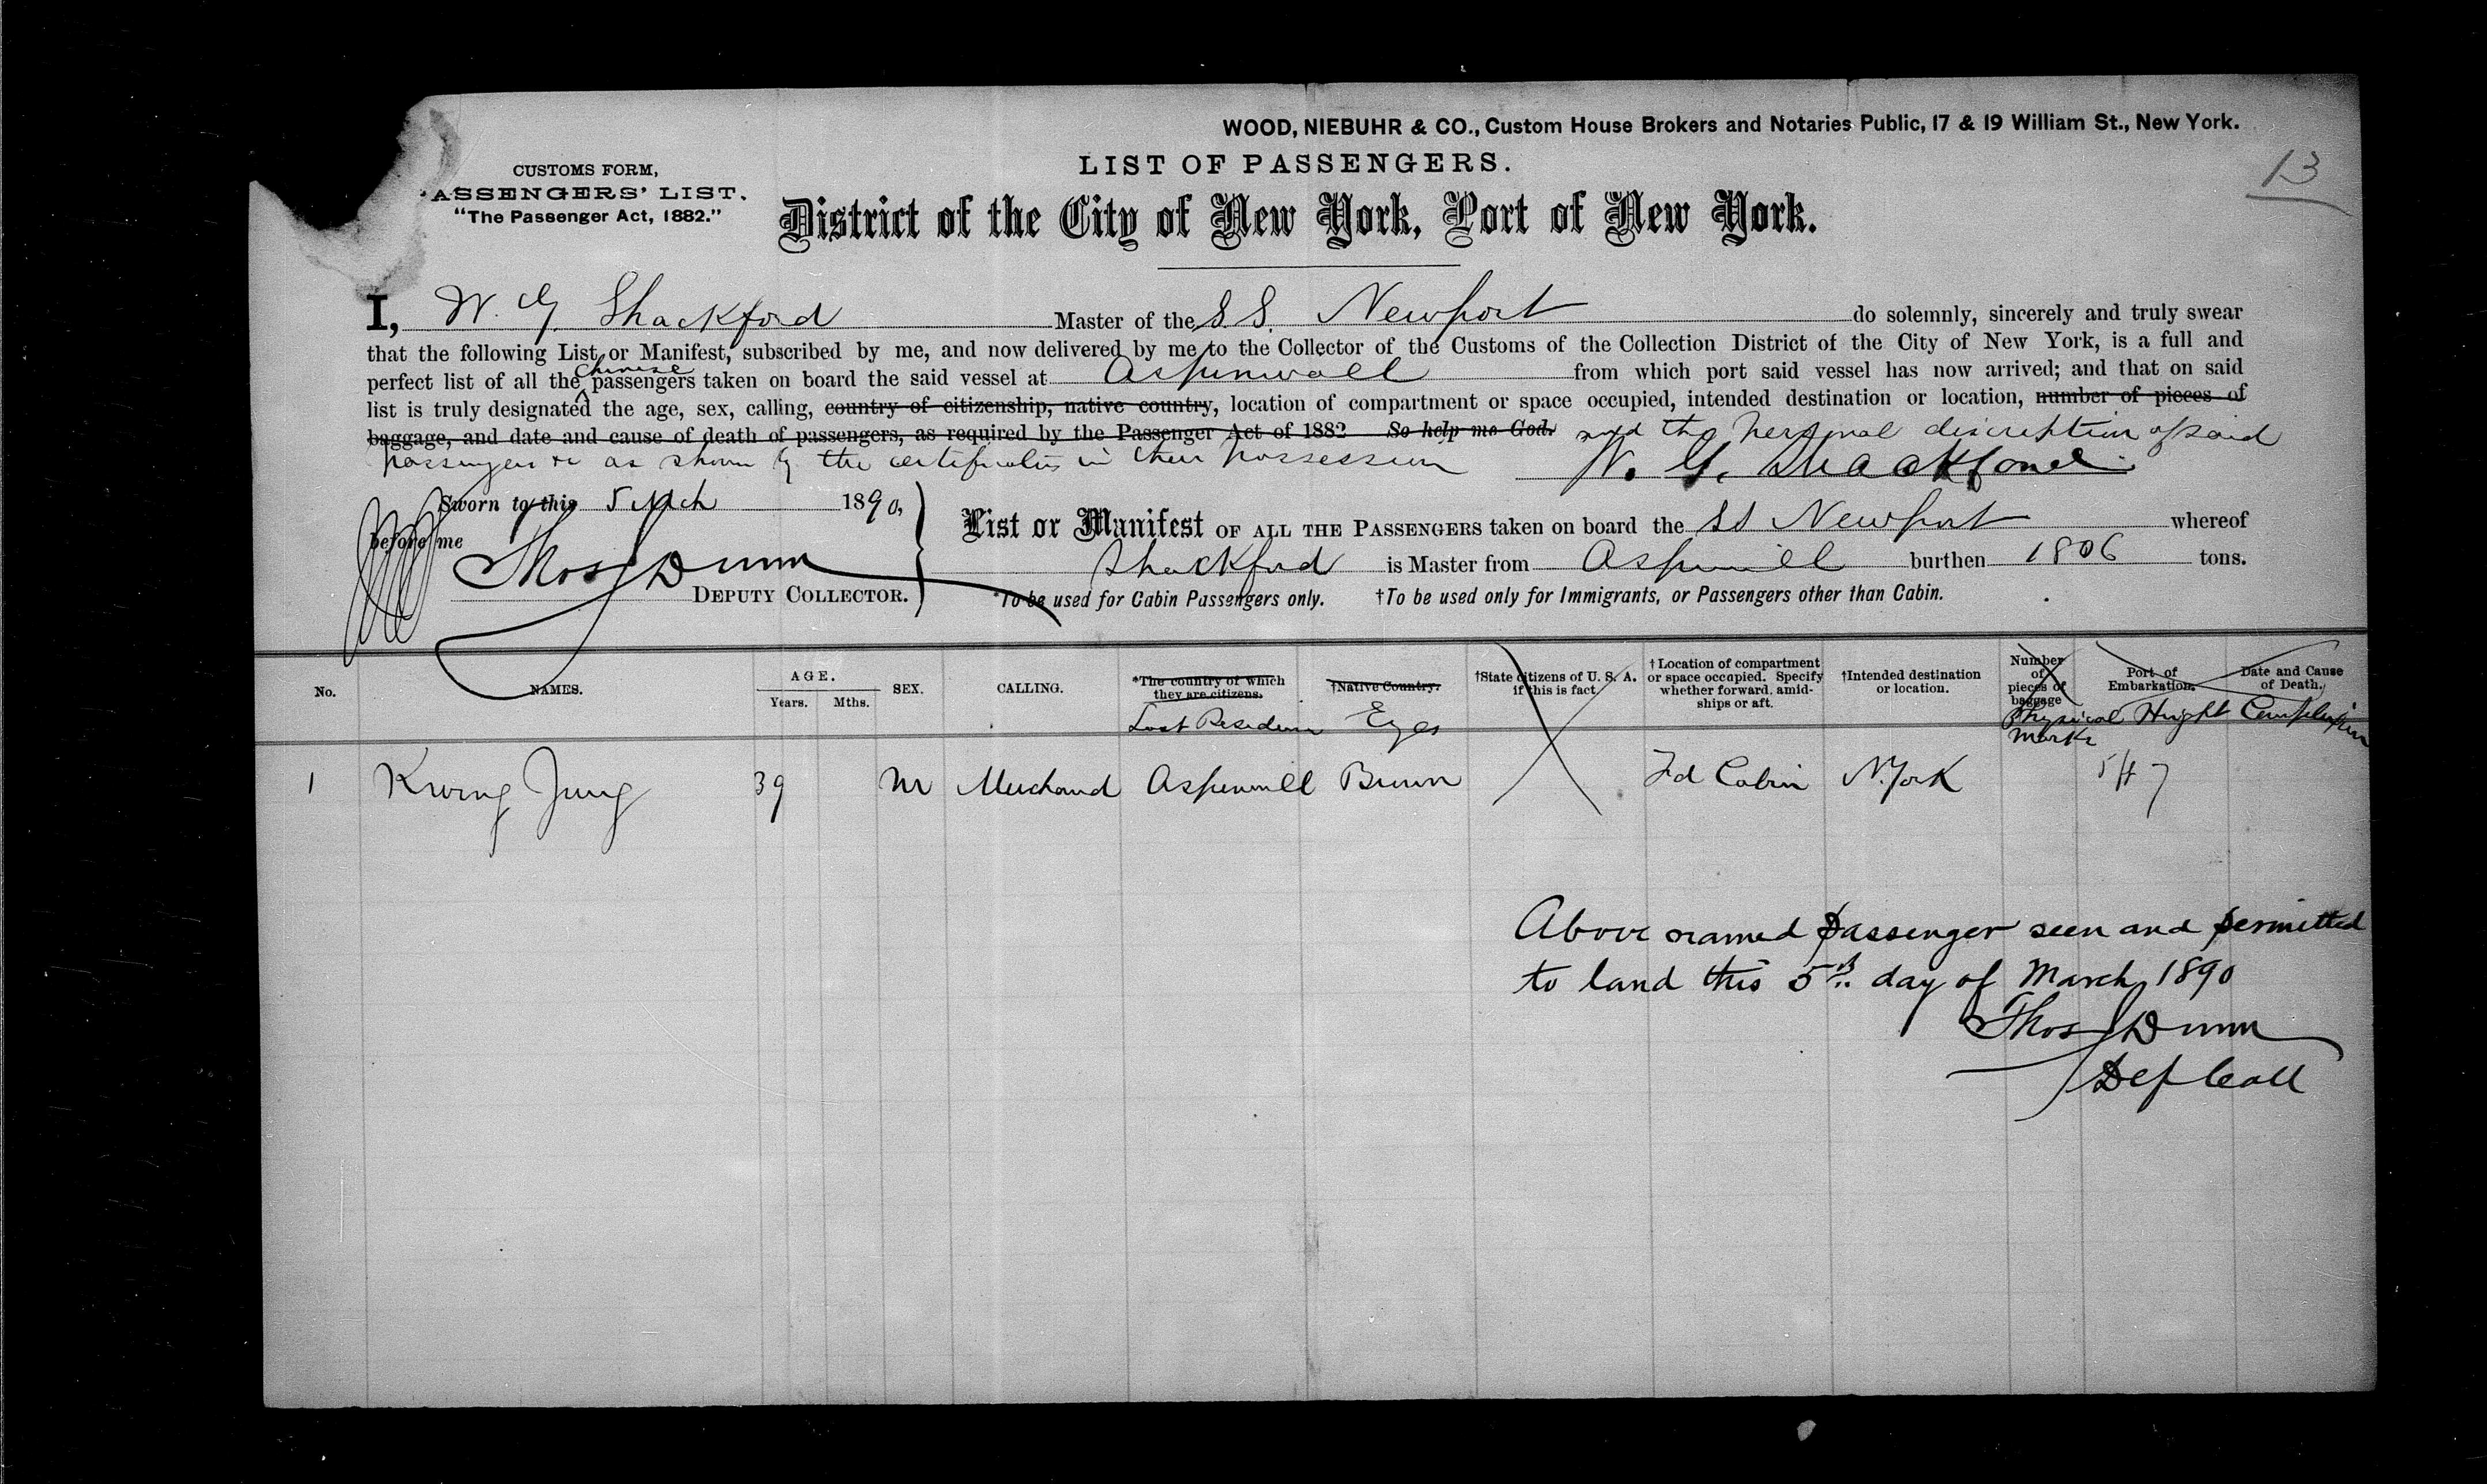 WOOD, NIEBUHR & CO., Custom House Brokers and Notaries Public, 17 & 19 William St., New York.
13
CUSTOMS FORM,
ASSENGERS' LIST.
"The Passenger Act, 1882."
LIST OF PASSENGERS.
District of the City of New York, Port of New York.
I, W. G. Shackford Master of the S S. Newport do solemnly, sincerely and truly swear
that the following List or Manifest, subscribed by me, and now delivered by me to the Collector of the Customs of the Collection District of the City of New York, is a full and
perfect list of all the Chinese passengers taken on board the said vessel at Aspinwall from which port said vessel has now arrived; and that on said
list is truly designated the age, sex, calling, country of citizenship, native country, location of compartment or space occupied, intended destination or location, number of pieces of
baggage, and date and cause of death of passengers, as required by the Passenger Act of 1882 So help me God. and the personal discription of said
passengers &c as shown by the certificates in their possession W. G. Shackford
Sworn to this 5 Mch 1890,
before me
Thos J Dunn
DEPUTY COLLECTOR.
List or Manifest OF ALL THE PASSENGERS taken on board the SS Newport whereof
Shackford is Master from Aspinwall burthen 1806 tons.
*To be used for Cabin Passengers only. †To be used only for Immigrants, or Passengers other than Cabin.
No. NAMES. AGE. Years. Mths. SEX. CALLING. *The country of which they are citizens. †Native Country. †State citizens of U. S. A. if this is fact. †Location of compartment or space occupied. Specify whether forward, amidships or aft. †Intended destination or location. Number of pieces of baggage Port of Embarkation. Date and Cause of Death.
Last Residence Eyes Physical Marks Height Complexion
1 Kwong Jung 39 M Merchand Aspinwall Brown 2d Cabin N. York 5ft 7
Above named passenger seen and permitted
to land this 5th day of March 1890
Thos J Dunn
Dep Coll